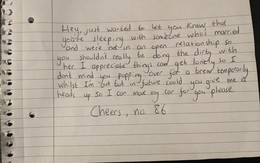 Hey, just wanted to let you know that
you're sleeping with someone who's married
and were not in an open relationship so
you shouldn't really be doing the dirty with
her. I appreciate things can get lonely so I
dont mind you popping over for a brew temporarily
whilst I'm out but in future could you give me a
heads up so I can move my car for you please.
Cheers, no. 86